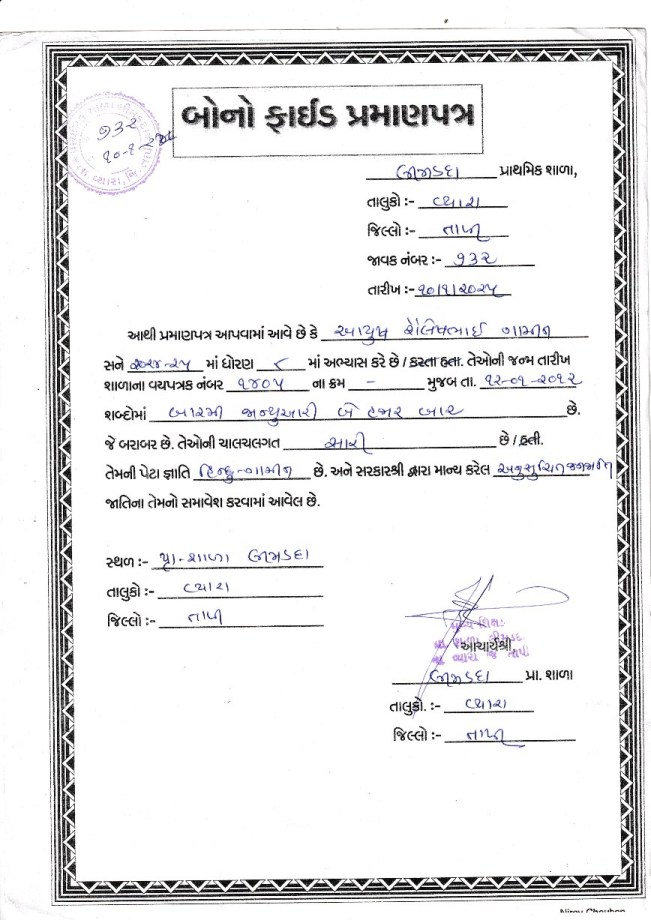 બોનો ફાઈડ પ્રમાણપત્ર
૧૩૨
૧૦-૧-૨૫
પ્રાથમિક શાળા,
તાલુકો :- વ્યારા
જિલ્લો :- તાપી
જાવક નંબર :- ૧૩૨
તારીખ :- ૧૦/૧/૨૦૨૫
આથી પ્રમાણપત્ર આપવામાં આવે છે કે આયુષ શૈલેષભાઈ ગામીત
સને ૨૦૨૪-૨૫ માં ધોરણ ૮ માં અભ્યાસ કરે છે / કરતા હતા. તેઓની જન્મ તારીખ
શાળાના વયપત્રક નંબર ૧૪૦૫ ના ક્રમ - મુજબ તા. ૧૨-૦૧-૨૦૧૨
શબ્દોમાં બારમી જાન્યુઆરી બે હજાર બાર છે.
જે બરાબર છે. તેઓની ચાલચલગત સારી છે / હતી.
તેમની પેટા જ્ઞાતિ હિન્દુ-ગામીત છે. અને સરકારશ્રી દ્વારા માન્ય કરેલ અનુસુચિત જનજાતિ
જાતિના તેમનો સમાવેશ કરવામાં આવેલ છે.
સ્થળ :- પ્રા-શાળા
તાલુકો :- વ્યારા
જિલ્લો :- તાપી
આચાર્યશ્રી
પ્રા. શાળા
તાલુકો. :- વ્યારા
જિલ્લો :- તાપી